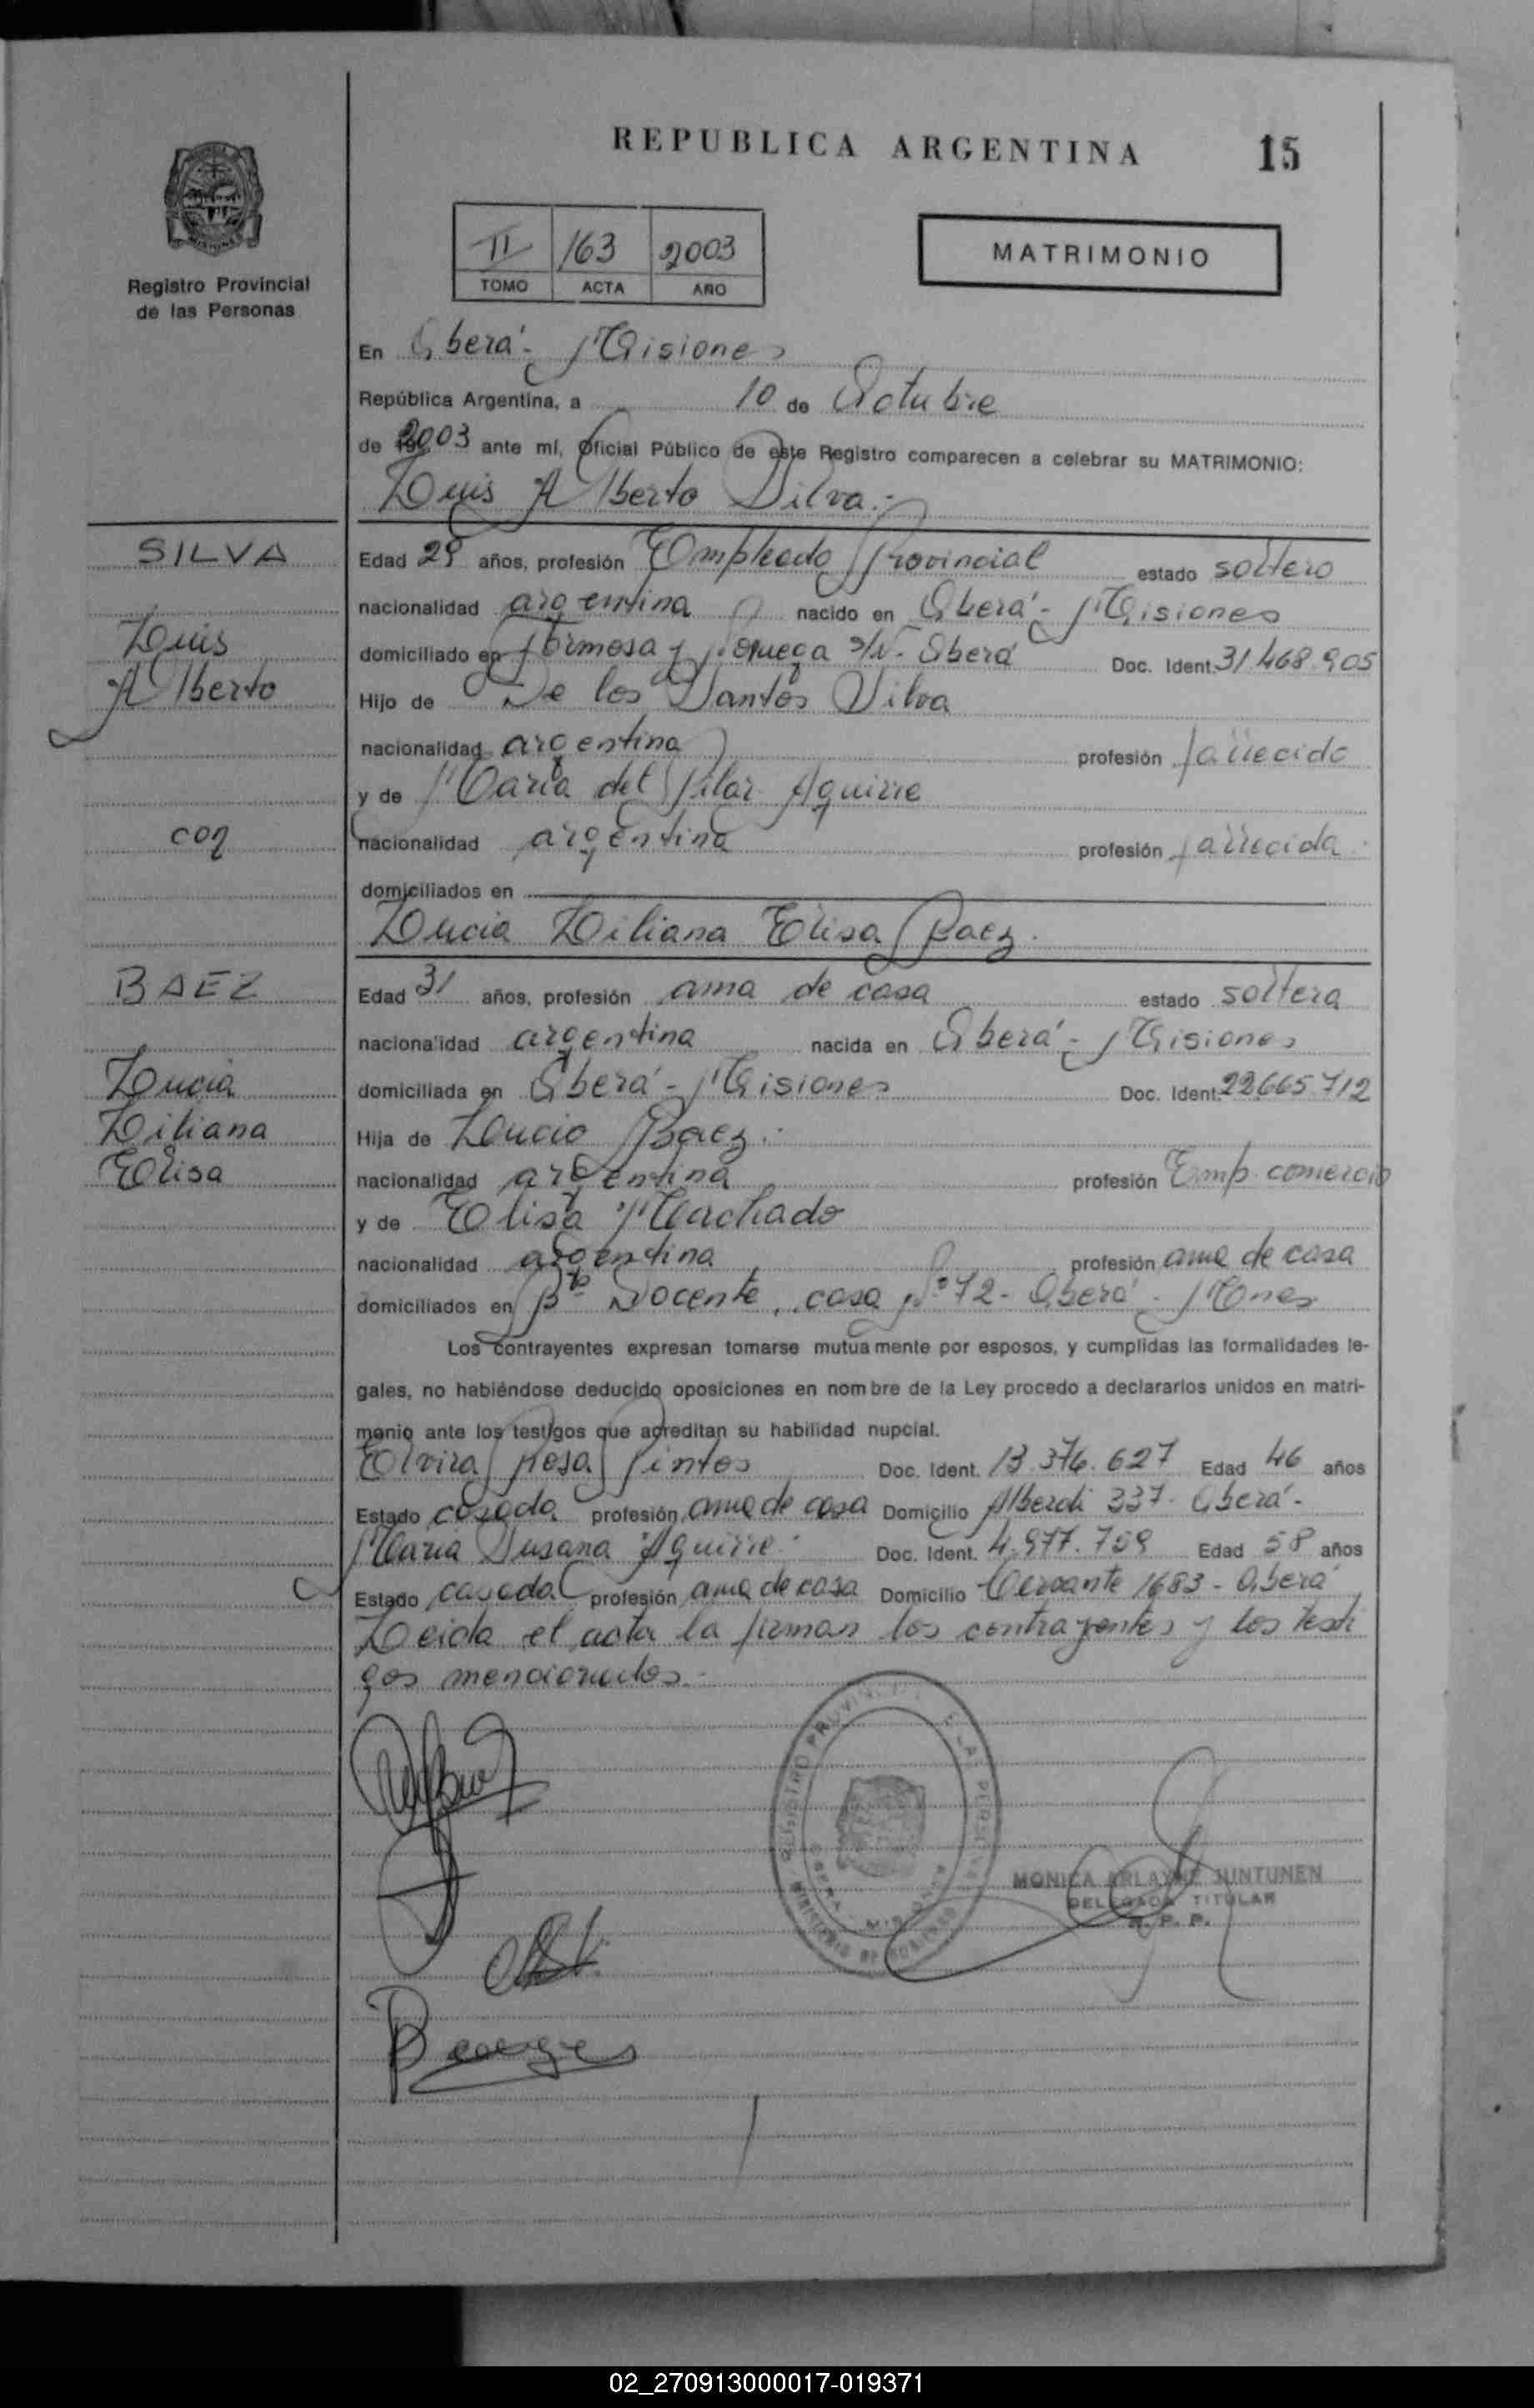 REPUBLICA ARGENTINA 15
Registro Provincial
de las Personas
II 163 2003
TOMO ACTA AÑO
MATRIMONIO
En Oberá - Misiones
República Argentina, a 10 de Octubre
de 2003 ante mí, Oficial Público de este Registro comparecen a celebrar su MATRIMONIO:
Luis Alberto Silva.-
SILVA
Luis
Alberto
con
Edad 29 años, profesión Empleado Provincial estado soltero
nacionalidad argentina nacido en Oberá - Misiones
domiciliado en Formosa y Noruega s/N- Oberá Doc. Ident. 31.468.905
Hijo de De los Santos Silva
nacionalidad argentina profesión fallecido
y de Maria del Pilar Aguirre
nacionalidad argentina profesión fallecida
domiciliados en
Lucia Liliana Elisa Baez.
BAEZ
Lucia
Liliana
Elisa
Edad 31 años, profesión ama de casa estado soltera
nacionalidad argentina nacida en Oberá - Misiones
domiciliada en Oberá - Misiones Doc. Ident. 22.665.712
Hija de Lucio Baez.
nacionalidad argentina profesión Emp. comercio
y de Elisa Machado
nacionalidad argentina profesión ama de casa
domiciliados en Bº Docente, casa Nº 72 - Oberá - Mnes
Los contrayentes expresan tomarse mutuamente por esposos, y cumplidas las formalidades le-
gales, no habiéndose deducido oposiciones en nombre de la Ley procedo a declararlos unidos en matri-
monio ante los testigos que acreditan su habilidad nupcial.
Elvira Rosa Pintos Doc. Ident. 13.376.627 Edad 46 años
Estado casada profesión ama de casa Domicilio Alberdi 337- Oberá-
Maria Susana Aguirre Doc. Ident. 4.977.759 Edad 58 años
Estado casada profesión ama de casa Domicilio Cervante 1683 - Oberá
Leida el acta la firman los contrayentes y los testi
gos mencionados.-
MONICA ARLAYNE JUNTUNEN
DELEGADA TITULAR
R. P. P.
02_270913000017-019371